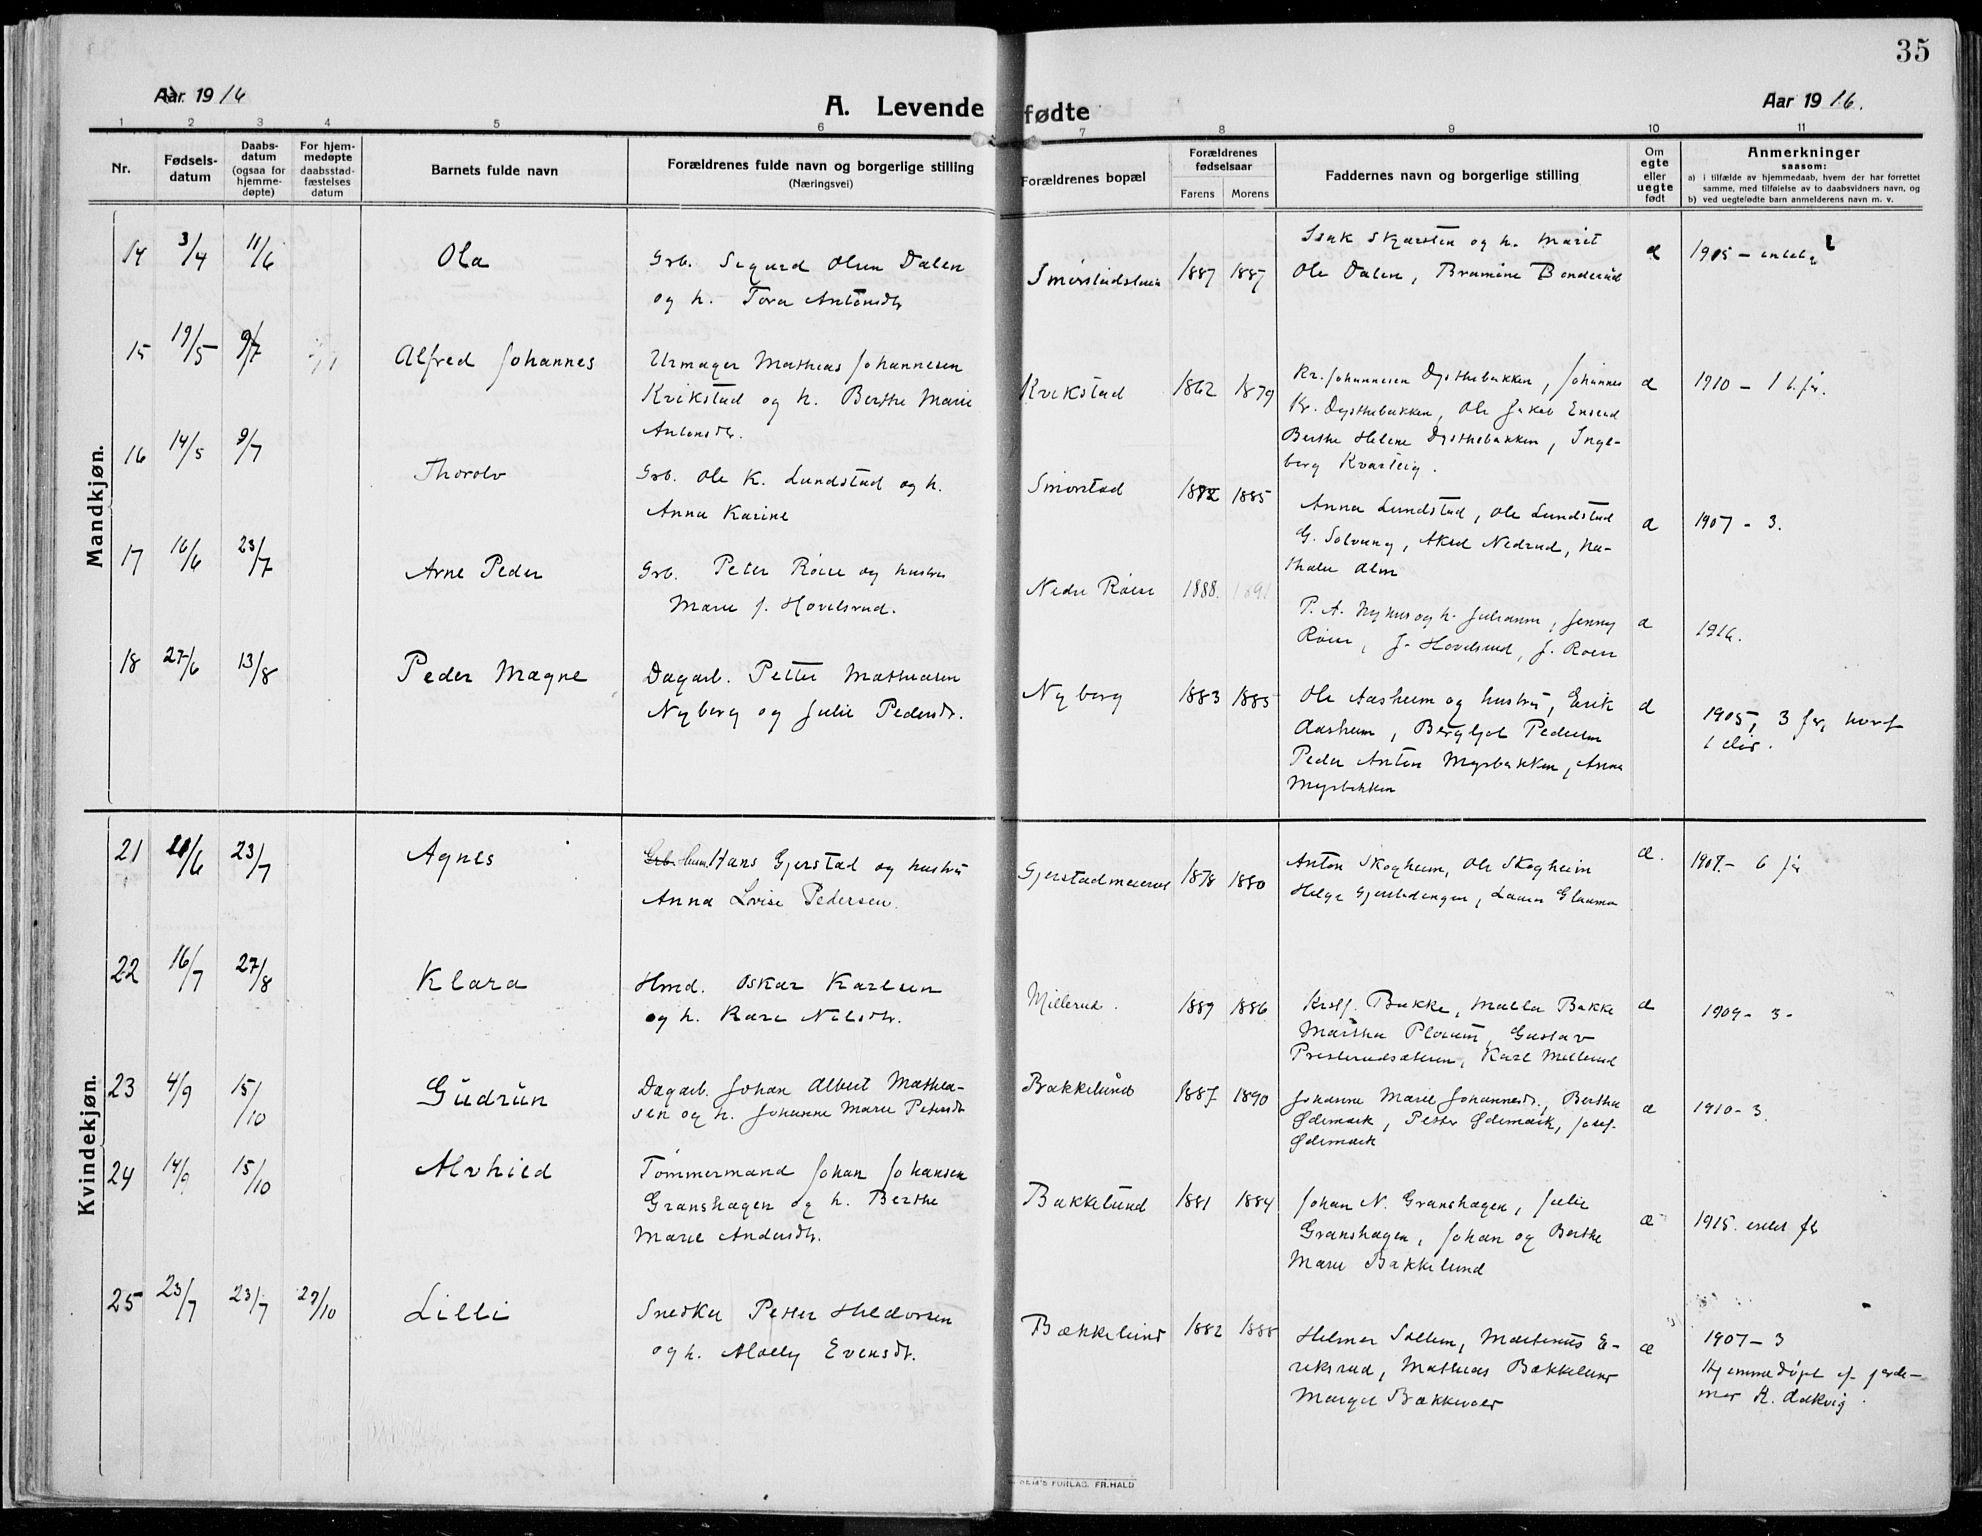 35
Aar 1916
A. Levende fødte
Aar 1916.
1 2 3 4 5 6 7 8 9 10 11
Nr.
Fødsels-
datum
Daabs-
datum
(ogsaa for
hjemme-
døpte)
For hjem-
medøpte
daabsstad-
fæstelses
datum
Barnets fulde navn
Forældrenes fulde navn og borgerlige stilling
(Næringsvei)
Forældrenes bopæl
Forældrenes
fødselsaar
Farens Morens
Faddernes navn og borgerlige stilling
Om
egte
eller
uegte
født
Anmerkninger
saasom:
a) i tilfælde av hjemmedaab, hvem der har forrettet
samme, med tilføielse av to daabsvidners navn, og
b) ved uegtefødte barn anmelderens navn m. v.
Mandkjøn.
14 3/4 11/6 Ola
Grb. Sigurd Olsen Dalen
og h. Tora Antonsdtr
1887 1887
Isak Skjarsten og h. Marit
Ole Dalen, Bramine Bonderud
æ
1905 –
15 19/5 9/7 Alfred Johannes
Urmager Mathias Johannesen
Krikstad og h. Berthe Marie
Antonsdtr.
Krikstad 1862 1879
Kr. Johannesen Dysthebakken, Johannes
Kr. Dysthebakken, Ole Jakob Enserud
Berthe Helene Dysthebakken, Ingeborg
æ
1910 –
16 14/5 9/7 Thorolv
Grb. Ole K. Lundstad og h.
Anna Karine
Smørstad 1885
Anna Lundstad, Ole Lundstad
G. Solvang, Aksel Nedrud, Na-
thalie Alm
æ
1907 – 3.
17 16/6 23/7 Arne Peder
Grb. Peter Røise og hustru
Marie J. Hovelsrud.
Nedre Røise 1888. 1891
P. A. Nyhus og h. Julianne, Jenny
Røise, J. Hovelsrud, J. Røise
æ
1916.
18 27/6 13/8 Peder Magne
Dagarb. Petter Mathiasen
Nyberg og Julie Pedersdtr.
Nyberg 1883 1885
Ole Aasheim og hustru, Erik
Aasheim, Bergljot Pedersen
Peder Anton Myrbakken, Anna
Myrbakken
æ
1905, 3 før, hvoraf
1 død.
Kvindekjøn.
21 23/7 Agnes
Hans Gjerstad og hustru
Anna Lovise Pedersen.
1878 1880
Anton Skogheim, Ole Skogheim
Helge Gjerstadengen,
æ.
6 før
22 16/7 27/8 Klara
Hmd. Oskar Karlsen
og h. Kare Nilsdtr.
Millerud. 1889 1886
Kristf. Bakke, Malla Bakke
Martha Plorum, Gustav
Presterudsæteren, Karl Millerud
æ
1909 – 3 –
23 4/9 15/10 Gudrun
Dagarb. Johan Albert Mathia-
sen og h. Johanne Marie Petersdtr
Bækkelund 1887 1890
Johanne Marie Johannesdtr., Bertha
Ødemark, Petter Ødemark, Josef
Ødemark
æ
1910 – 3.
24 14/9 15/10 Alvhild
Tømmermand Johan Johansen
Granshagen og h. Berthe
Marie Andersdtr.
Bakkelund 1881 1884
Johan N. Granshagen, Julie
Granshagen, Johan og Berthe
Marie Bakkelund
æ
1915.
25 23/7 23/7 29/10 Lilli
Snedker Petter Hildorsen
og h. Molly Evensdtr.
Bækkelund 1882 1888
Helmer Sollien, Martinus E-
riksrud, Mathias Bækkelund
Margit Bækkevold
æ
1907 – 3
Hjemmedøpt af jorde-
mor
FORLAG. FR.HALD